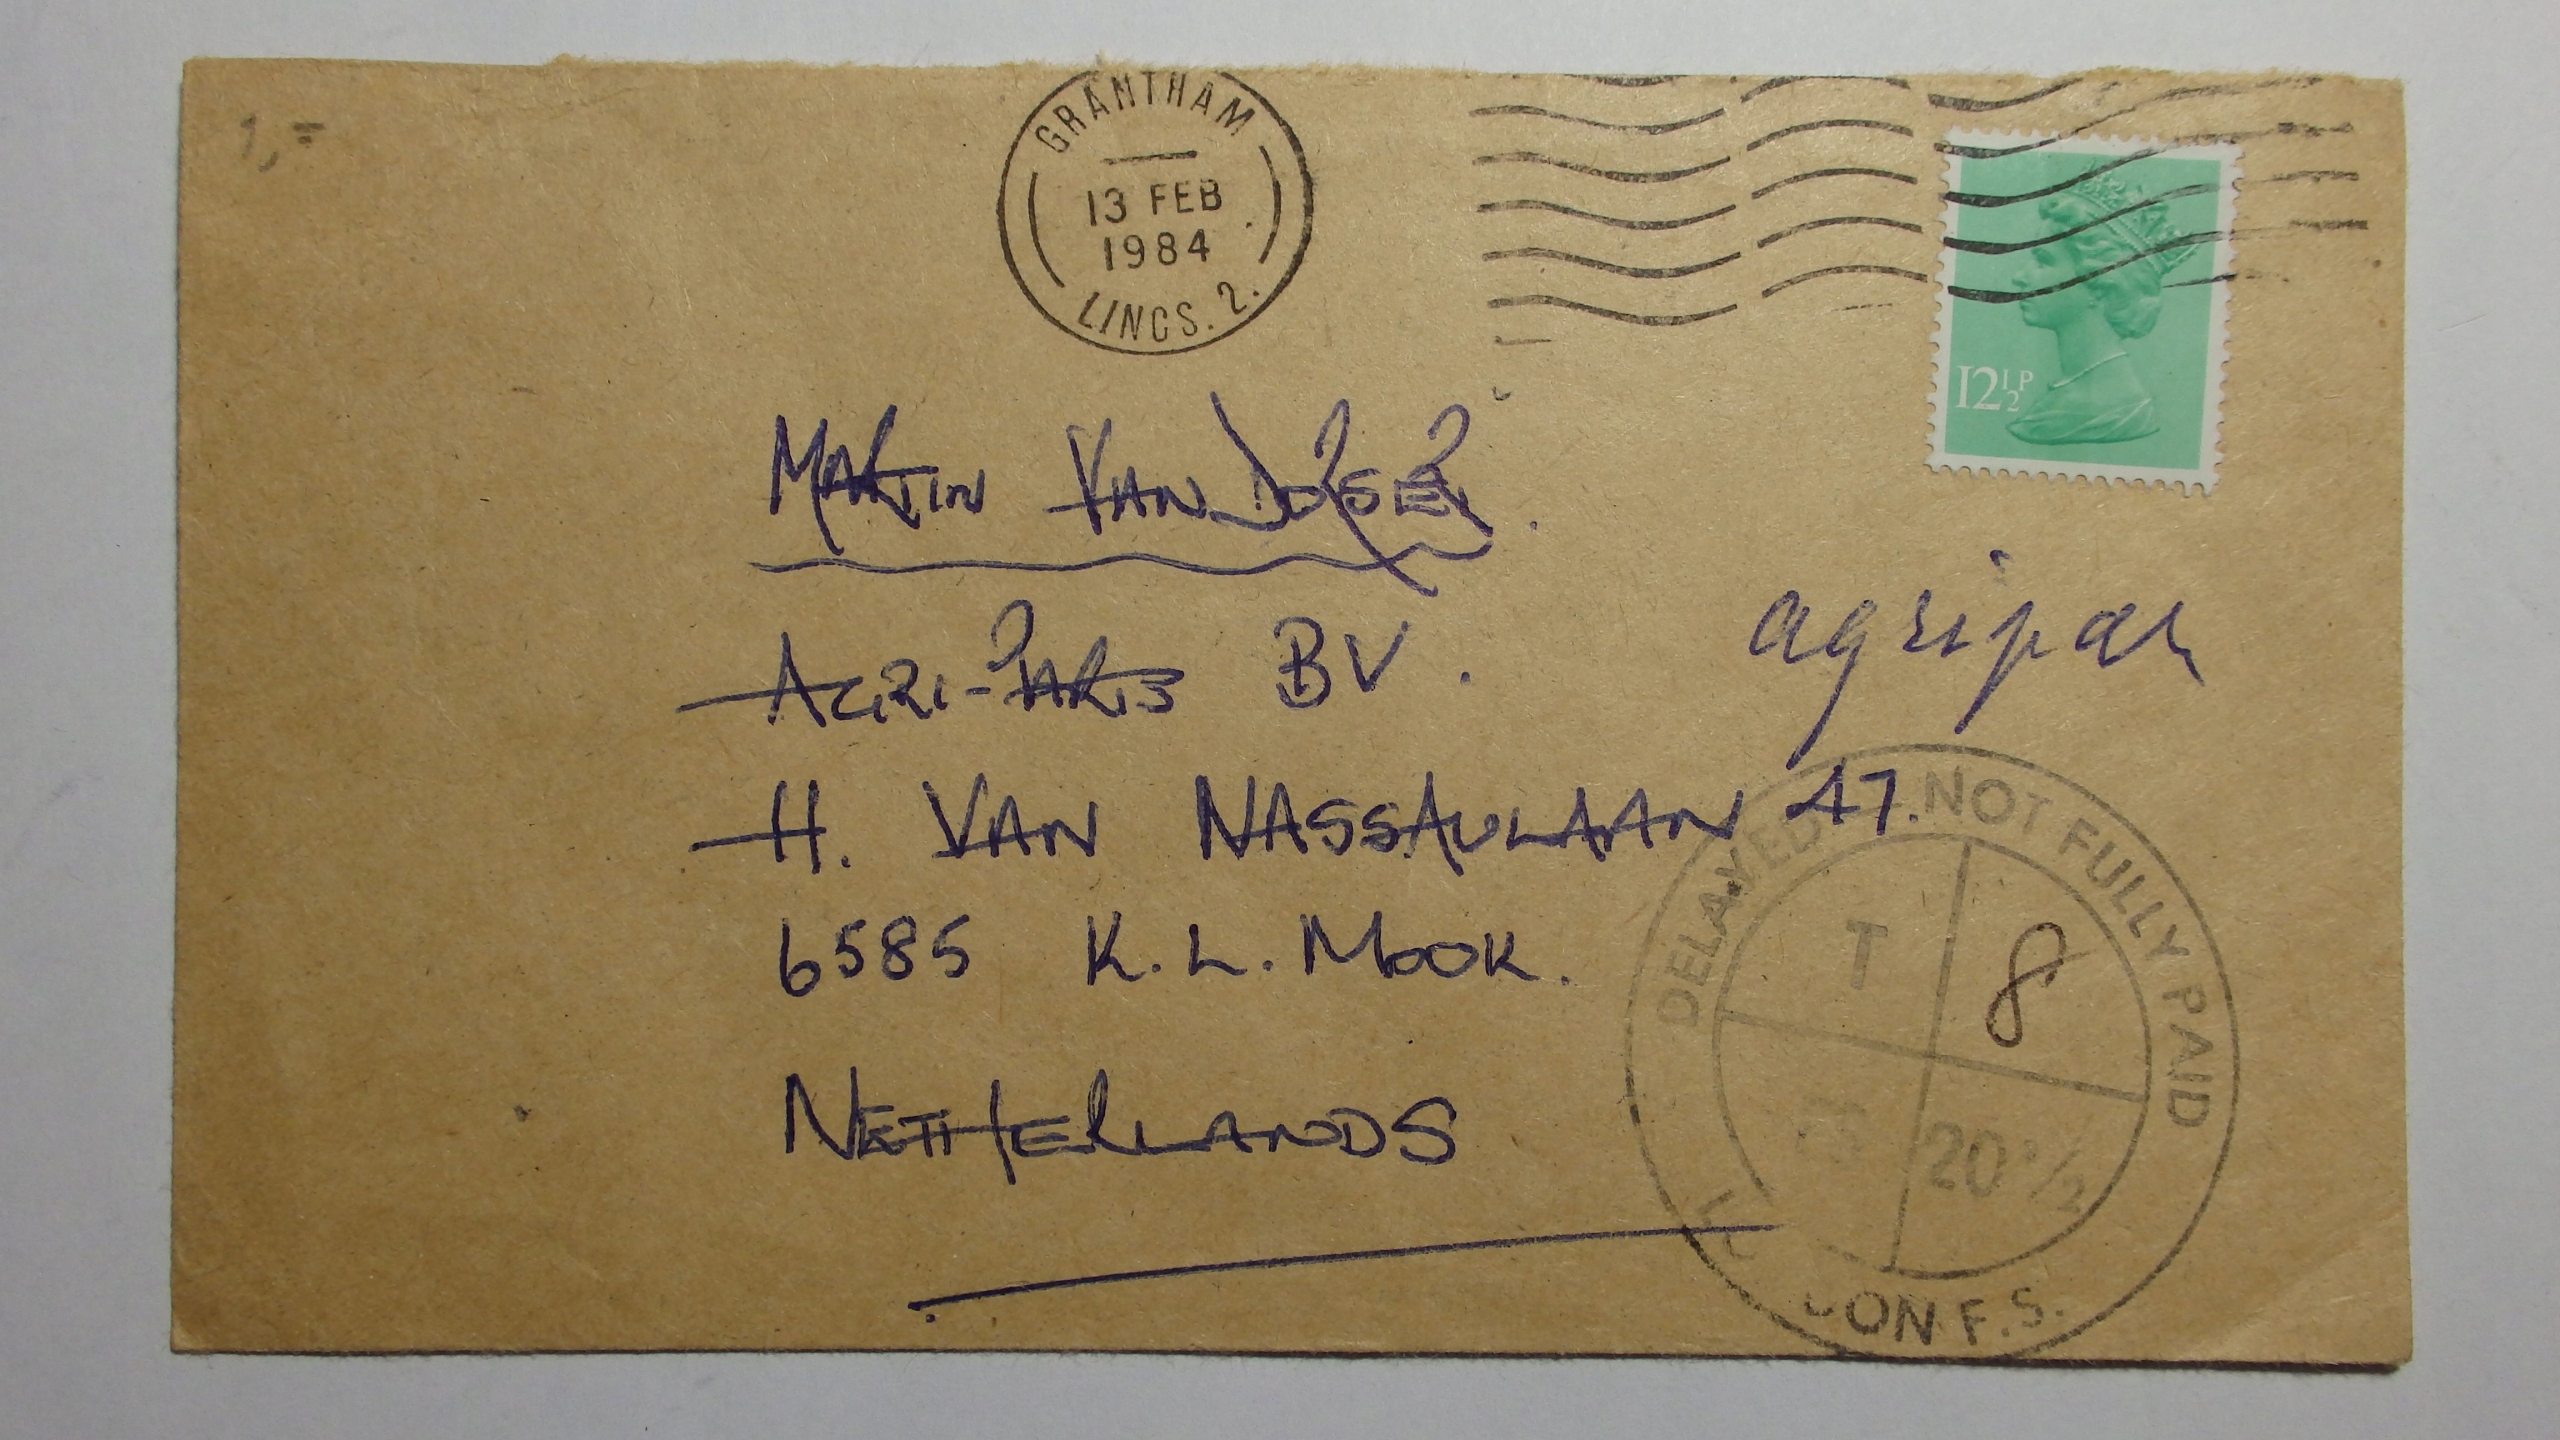 1,=
GRANTHAM
13 FEB
1984
LINCS. 2.
12½P
MARTIN VAN
AGRI-PARTS BV.
agripar
H. VAN NASSAULAAN 47.
6585 K.L. MOOK.
NETHERLANDS
DELAYED NOT FULLY PAID
T 8
20½
F.S.